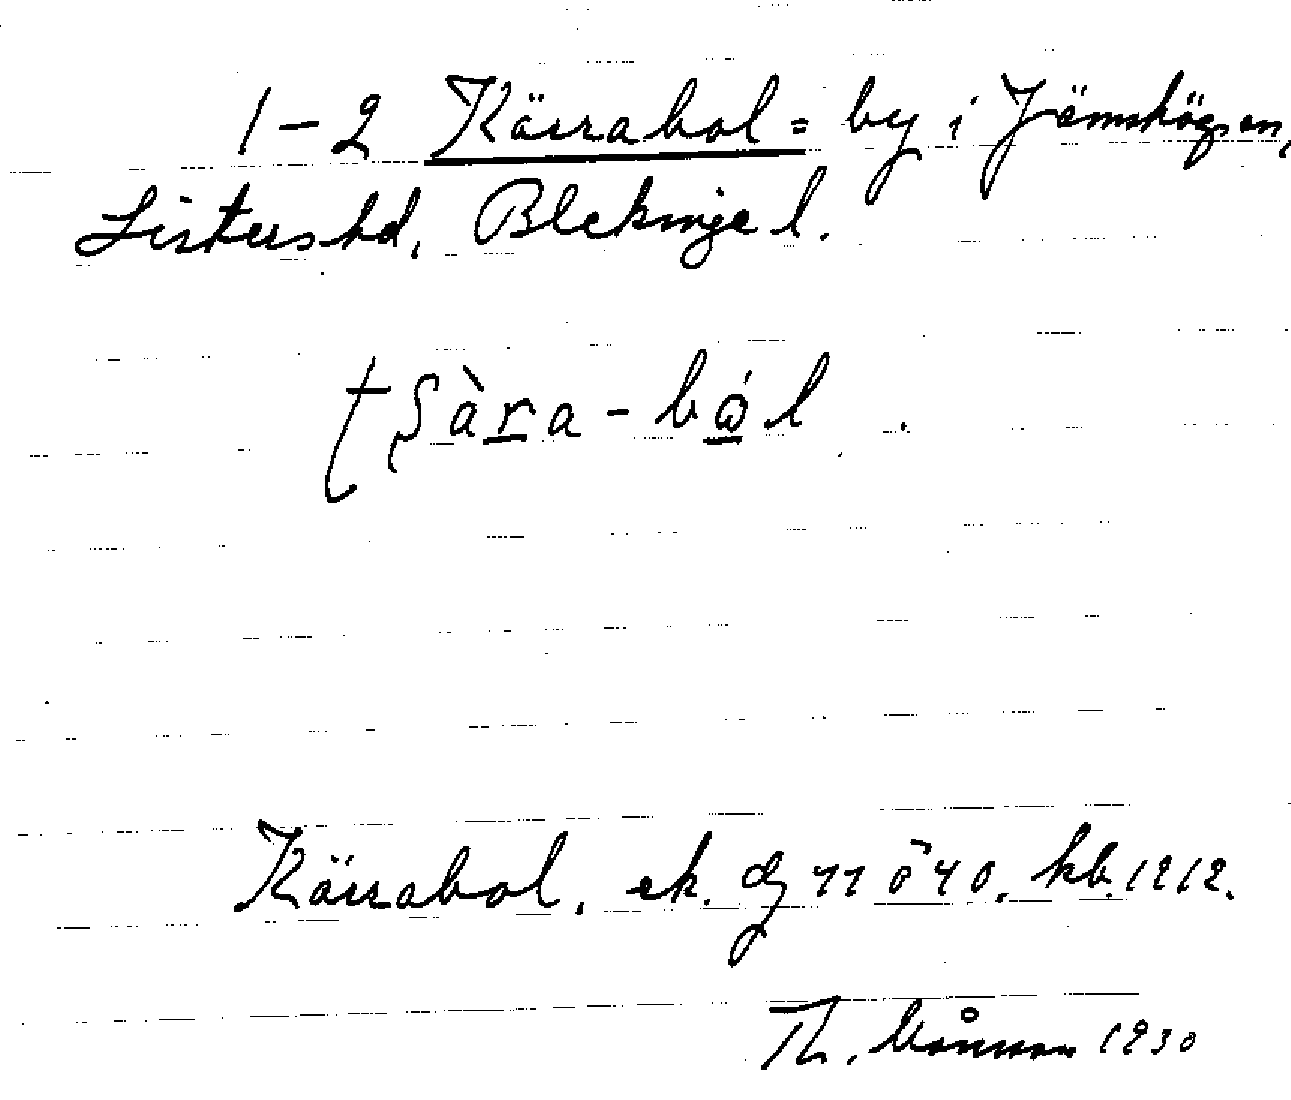 1-2 Kärrabol = by i Jämshög sn,
Listers hd, Blekinge l.
tʃàra-bål
Kärrabol, ek. bl 11 ö 40. kb. 1912.
Th. Månsson 1930